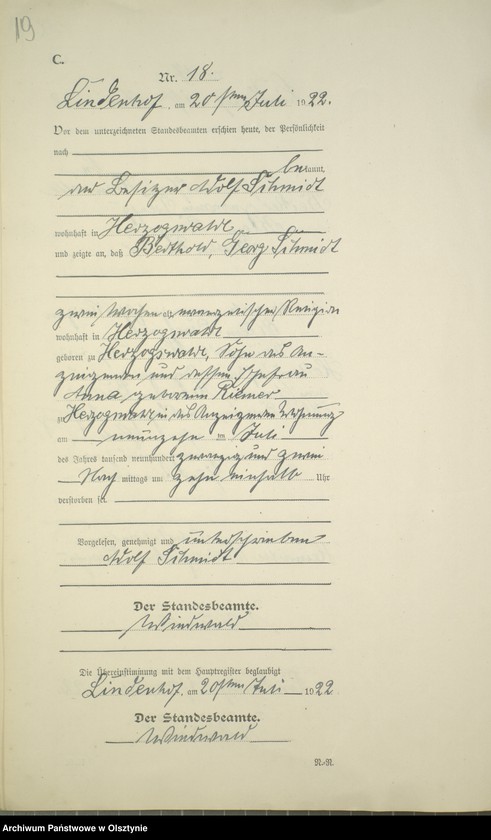 19
C.
Nr. 18.
Lindenhof, am 20sten Juli 1922.
Vor dem unterzeichneten Standesbeamten erschien heute, der Persönlichkeit
nach
bekannt,
der Besitzer Adolf Schmidt
wohnhaft in Herzogswalde
und zeigte an, daß Berthold, Georg Schmidt
zwei Wochen alt, evangelischer Religion
wohnhaft in Herzogswalde
geboren zu Herzogswalde, Sohn des An-
zeigenden und dessen Ehefrau
Anna, geborenen Riemer
zu Herzogswalde, in des Anzeigenden Wohnung
am neunzehn ten Juli
des Jahres tausend neunhundert zwanzig und zwei
Nach mittags um zehn einhalb Uhr
verstorben sei.
Vorgelesen, genehmigt und unterschrieben
Adolf Schmidt
Der Standesbeamte.
Windwald
Die Übereinstimmung mit dem Hauptregister beglaubigt
Lindenhof, am 20sten Juli 1922
Der Standesbeamte.
Windwald
N.-N.
Archiwum Państwowe w Olsztynie